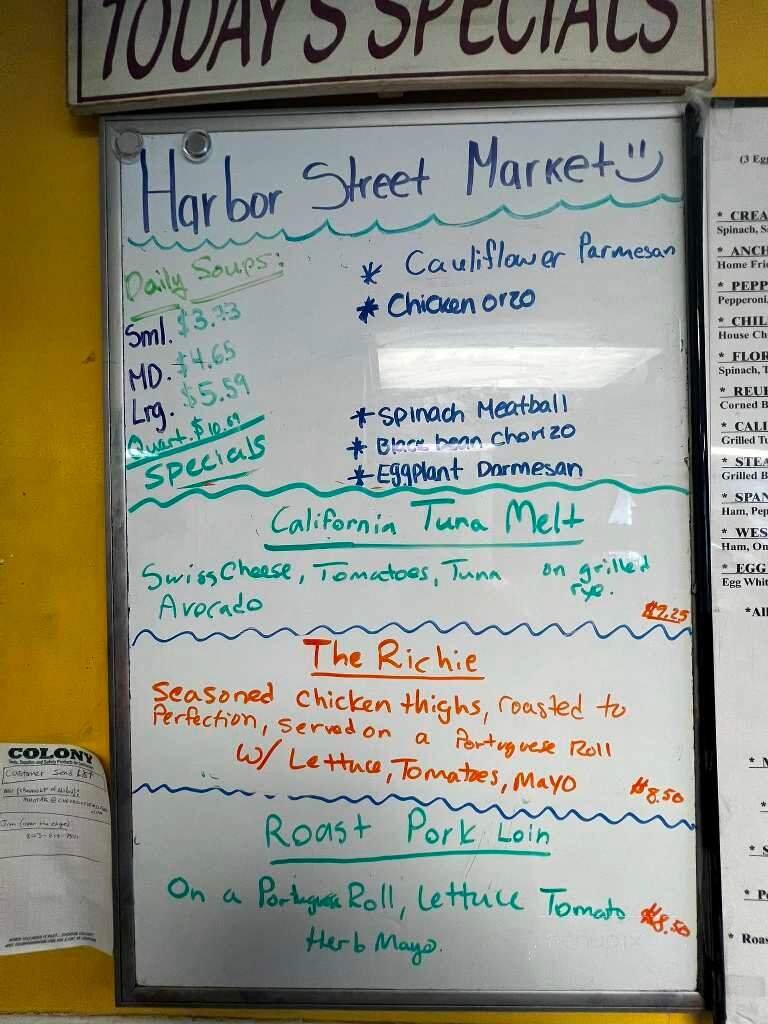 TODAY'S SPECIALS
Harbor Street Market
Daily Soups:
Sml. $3.33
MD. $4.65
Lrg. $5.59
Quart. $10.69
* Cauliflower Parmesan
* Chicken orzo
* Spinach Meatball
* Black bean Chorizo
* Eggplant Parmesan
Specials
California Tuna Melt
Swiss Cheese, Tomatoes, Tuna on grilled
Avocado rye.
The Richie
Seasoned chicken thighs, roasted to
Perfection, served on a Portuguese Roll
w/ Lettuce, Tomatoes, Mayo $8.50
Roast Pork Loin
On a Portuguese Roll, Lettuce Tomato $8.50
Herb Mayo.
COLONY
Customer Send List
(3 Egg
* CREA
Spinach, S
* ANCH
Home Frie
* PEPP
Pepperoni,
* CHIL
House Ch
* FLOR
Spinach, T
* REUB
Corned B
* CALI
Grilled Tu
* STEA
Grilled B
* SPAN
Ham, Pep
* WES
Ham, On
* EGG
Egg Whit
*All
* Roas